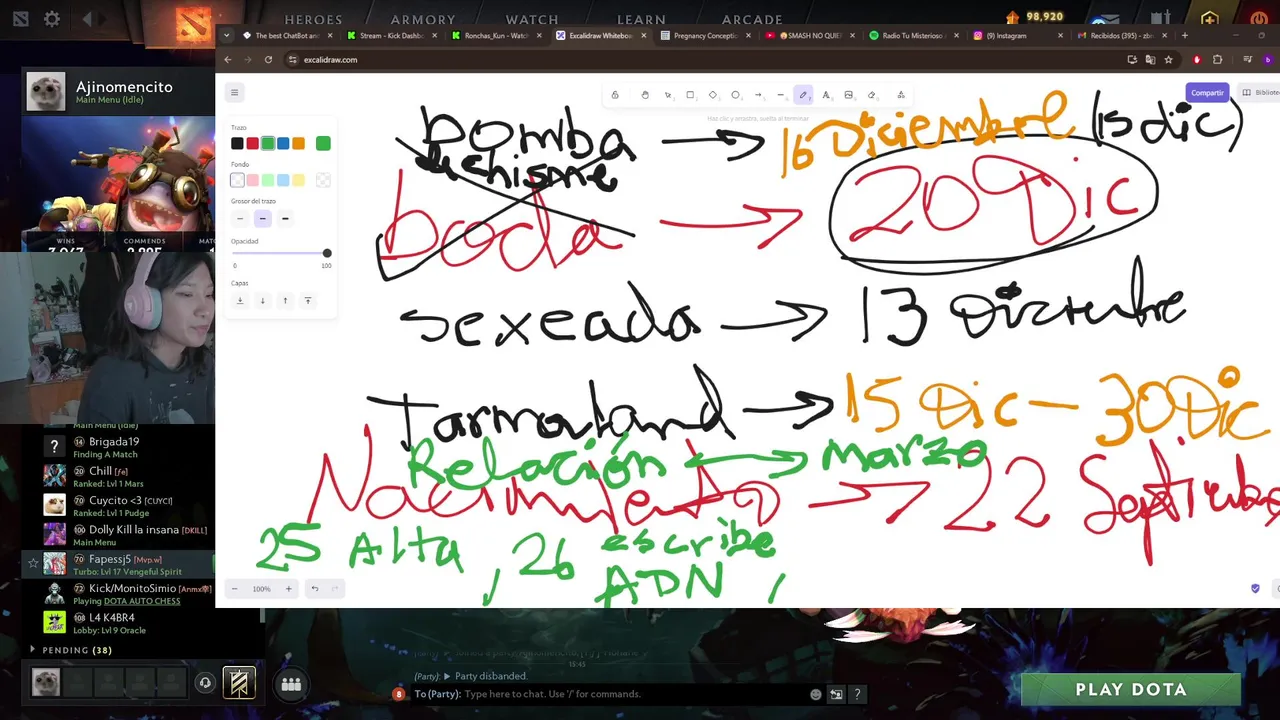 HEROES ARMORY WATCH LEARN ARCADE 98,920
The best ChatBot an Stream - Kick Dashb Ronchas_Kun - Watch Excalidraw Whiteboa Pregnancy Conceptio SMASH NO QUIE Radio Tu Misterioso (9) Instagram Recibidos (395) - zb
excalidraw.com
Ajinomencito
Main Menu (Idle)
Compartir Bibliote
Haz clic y arrastra, suelta al terminar
Trazo
Fondo
Grosor del trazo
Opacidad
0 100
Capas
WINS COMMENDS
bomba → 16 Diciembre (15 dic)
boda → 20 Dic
sexeada → 13 Diciembre
Tarmaland → 15 Dic — 30 Dic
Relación → marzo
Nacimiento → 22
25 Alta, 26 escribe
ADN,
100%
Main Menu (Idle)
14 Brigada19
Finding A Match
Chill [ƒe]
Ranked: Lvl 1 Mars
70 Cuycito <3 [CUYCI]
Ranked: Lvl 1 Pudge
100 Dolly Kill la insana [DKILL]
Main Menu (Idle)
70 Fapessj5 [Mvp.w]
Turbo: Lvl 17 Vengeful Spirit
72 Kick/MonitoSimio
Playing DOTA AUTO CHESS
108 L4 K4BR4
Lobby: Lvl 9 Oracle
PENDING (38)
15:45
(Party): Party disbanded.
8 To (Party): Type here to chat. Use '/' for commands. ?
PLAY DOTA